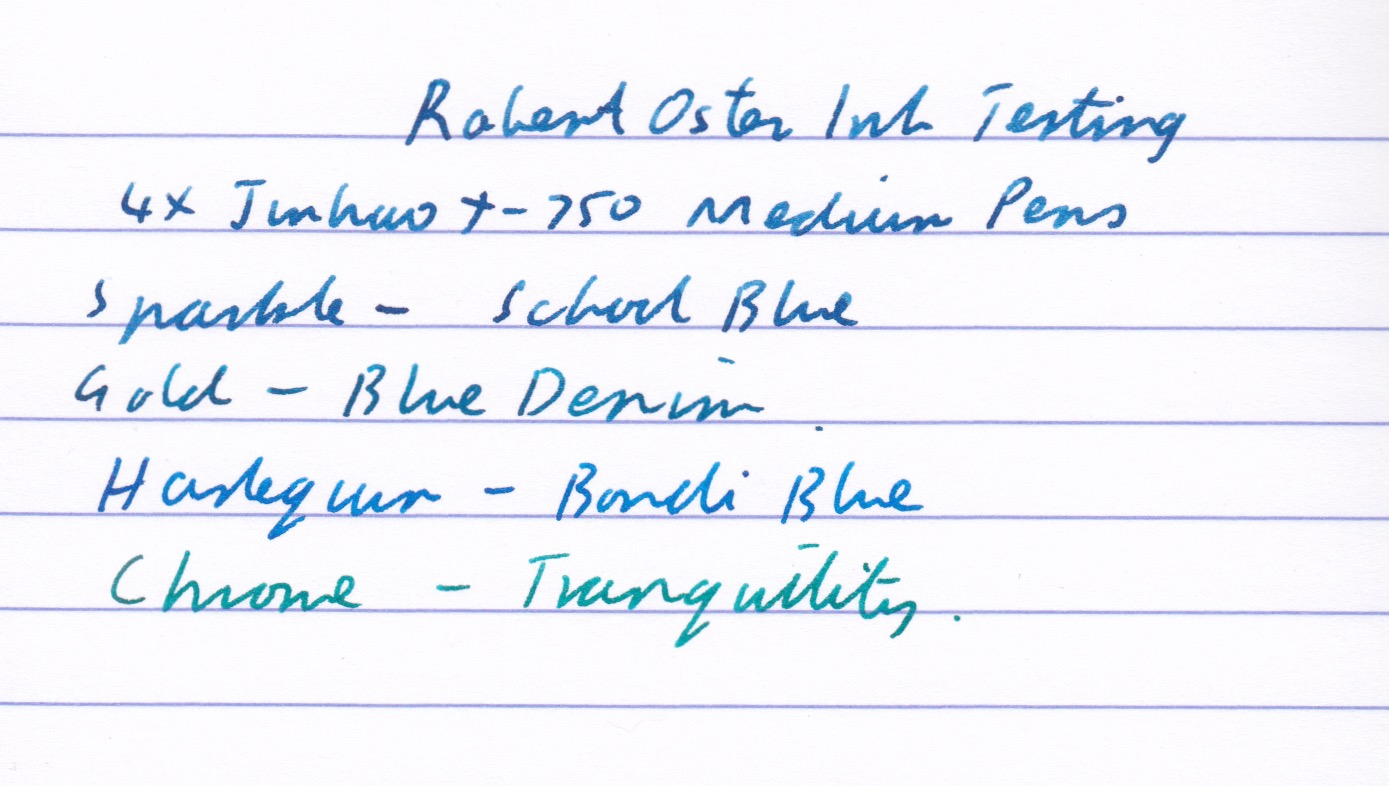 Robert Oster Ink Testing
4x Jinhao X-750 Medium Pens
Sparkle - School Blue
Gold - Blue Denim.
Harlequin - Bondi Blue
Chrome - Tranquility.